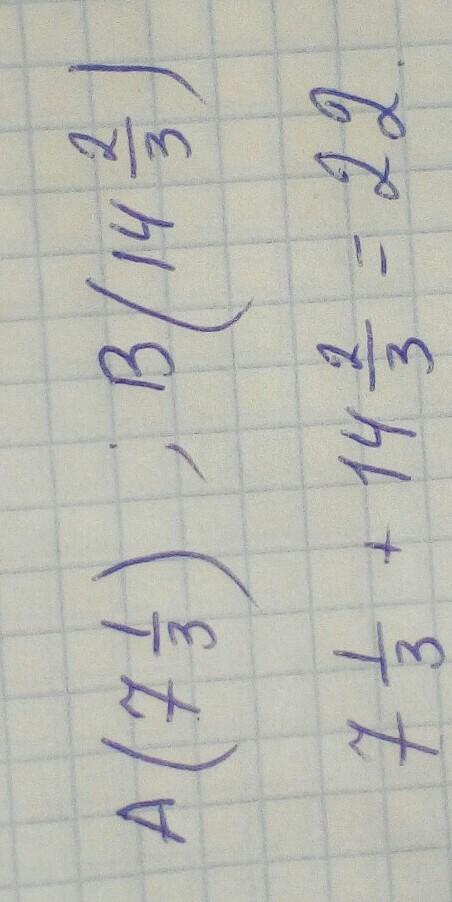 A(7 1/3); B(14 2/3)
7 1/3 + 14 2/3 = 22